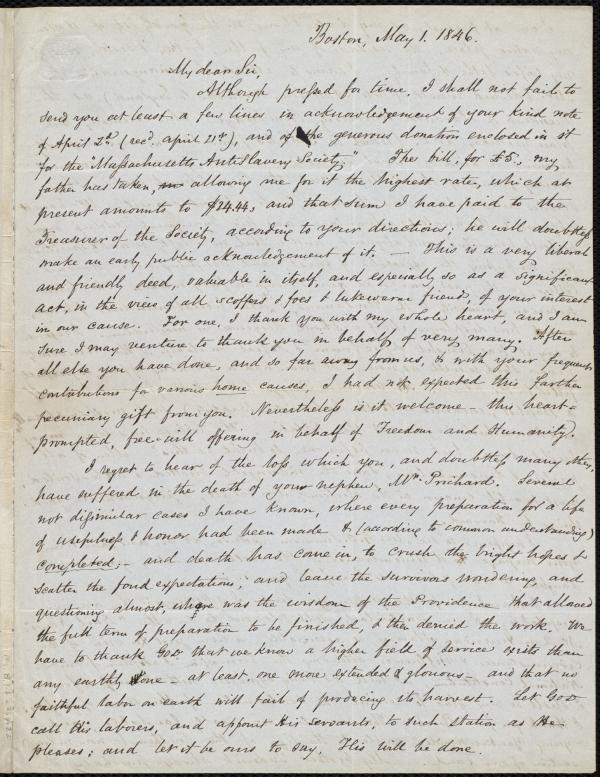 Boston, May 1. 1846.
My dear Sir,
Although pressed for time, I shall not fail to
send you at least a few lines in acknowledgement of your kind note
of April 2d. (recd. april 21st), and of the generous donation enclosed in it
for the "Massachusetts AntiSlavery Society." The bill, for £5., my
father has taken, allowing me for it the highest rate, which at
present amounts to $24.44, and that sum I have paid to the
Treasurer of the Society, according to your directions; he will doubtless
make an early public acknowledgement of it. — This is a very liberal
and friendly deed, valuable in itself, and especially so as a significant
act, in the view of all scoffers & foes & lukewarm friends, of your interest
in our cause. For one, I thank you with my whole heart, and I am
sure I may venture to thank you in behalf of very many. After
all else you have done, and so far away from us, & with your frequent
contributions for various home causes, I had not expected this farther
pecuniary gift from you. Nevertheless is it welcome - this heart-
prompted, free-will offering in behalf of Freedom and Humanity.
I regret to hear of the loss which you, and doubtless many others,
have suffered in the death of your nephew, Mr. Prichard. Several
not dissimilar cases I have known, where every preparation for a life
of usefulness & honor had been made & (according to common understanding)
completed; - and death has come in, to crush the bright hopes &
scatter the fond expectations; and leave the survivors wondering and
questioning almost, where was the wisdom of the Providence that allowed
the full term of preparation to be finished, & then denied the work. We
have to thank God that we know a higher field of service exists than
any earthly one - at least, one more extended & glorious - and that no
faithful labor on earth will fail of producing its harvest. Let God
call His laborers, and appoint His servants, to such station as He
pleases; and let it be ours to say, His will be done.